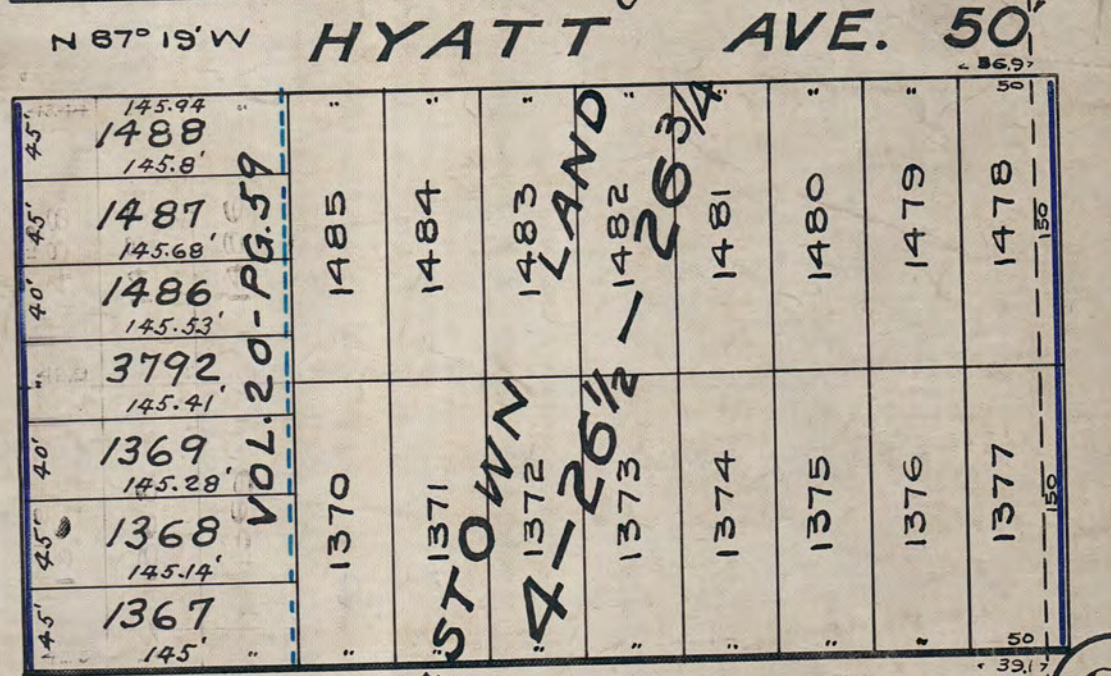 N 87° 19' W HYATT AVE. 50'
36.9
145.94 " " " " " " " 50
45' 1488
145.8'
45' 1487
145.68'
40' 1486
145.53'
" 3792
145.41'
40' 1369
145.28'
45' 1368
145.14'
45' 1367
145' " " " " " " " " 50
39.1
VOL. 20 - PG. 59
1485 1484 1483 1482 1481 1480 1479 1478 150
1370 1371 1372 1373 1374 1375 1376 1377 150
STOWN LAND
4 — 26 1/2 — 26 3/4